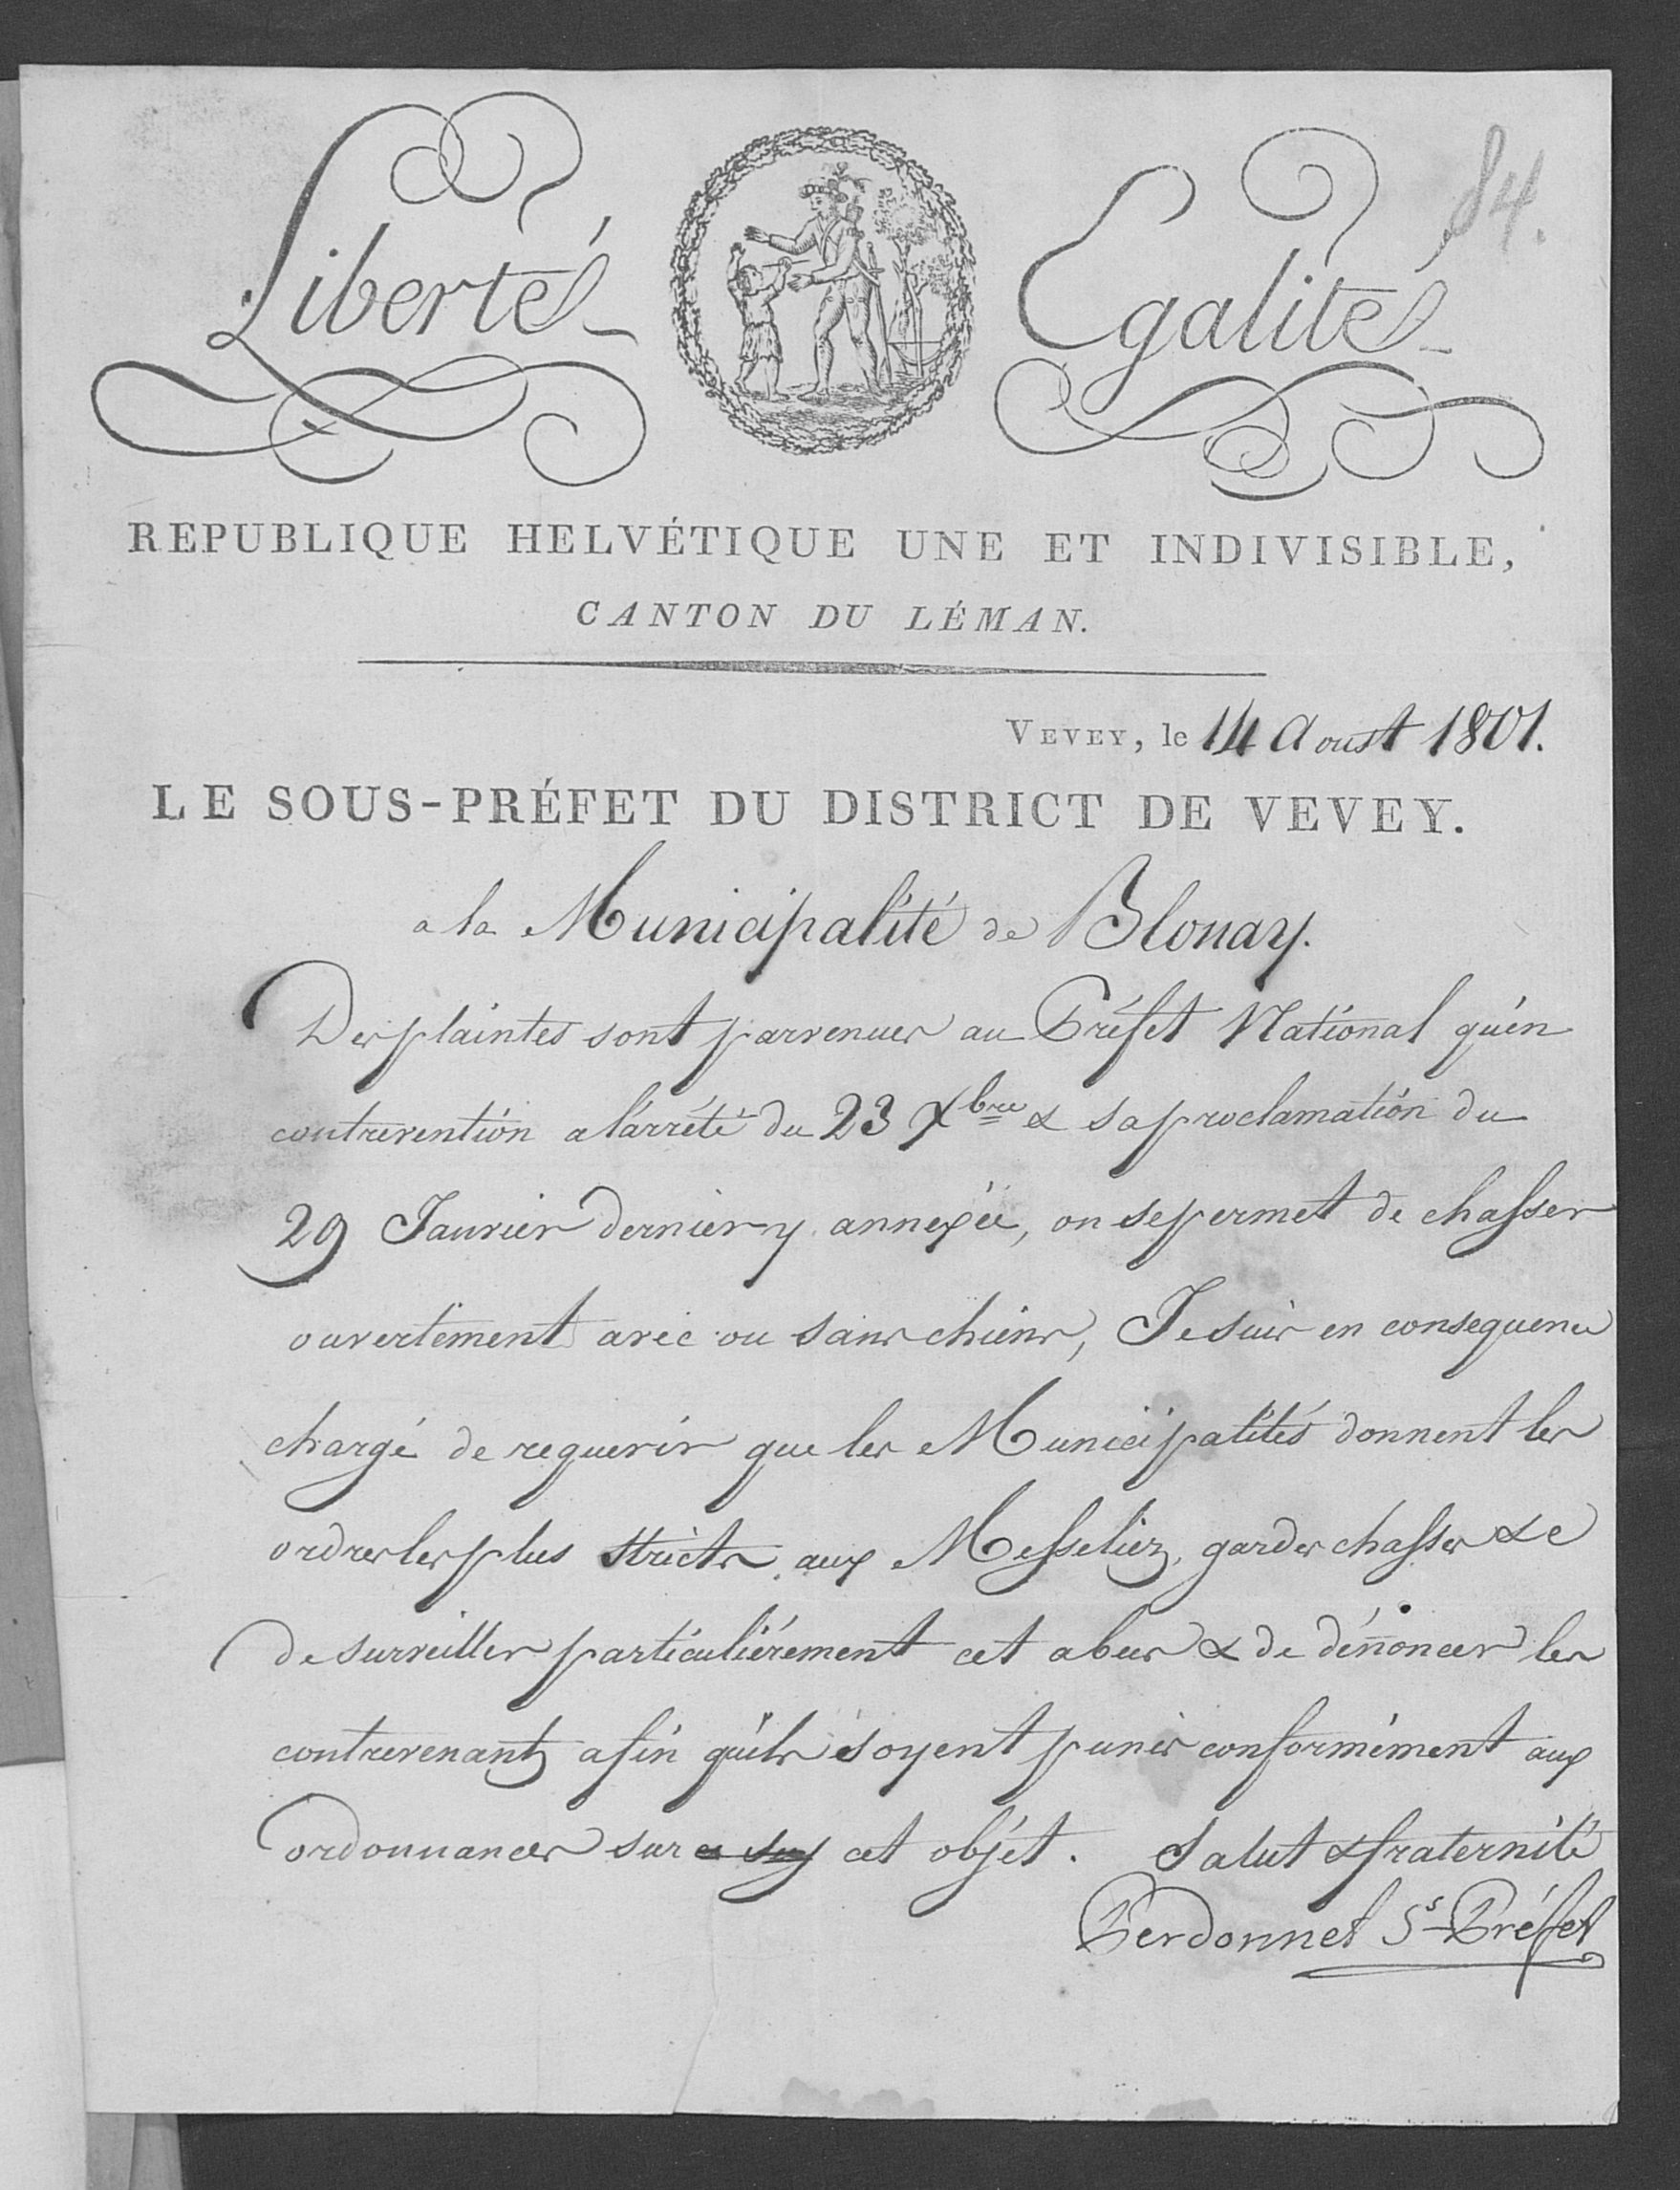 84.
Liberté
Egalité
REPUBLIQUE HELVÉTIQUE UNE ET INDIVISIBLE,
CANTON DU LÉMAN.
VEVEY, le 14 Aoust 1801.
LE SOUS-PRÉFET DU DISTRICT DE VEVEY.
a la Municipalité de Blonay.
Des plaintes sont parvenues au Préfet National qu'en
contrevention a l'arrêté du 23 Xbre & sa proclamation du
29 Janvier dernier y annexée, on se permet de chasser
ouvertement avec ou sans chiens, Je suis en consequence
chargé de requerir que les Municipalités donnent les
ordres les plus stricts aux Messeliez, gardes chasses &c
de surveiller particuliérement cet abus & de dénoncer les
contrevenantz afin qu'ils soyent punis conformément aux
ordonnances sur cet objet. Salut & fraternité
Perdonnet Ss-Préfet